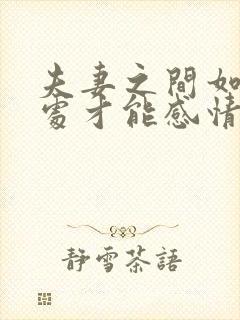 夫妻之間如
處才能感情
靜雪茶語